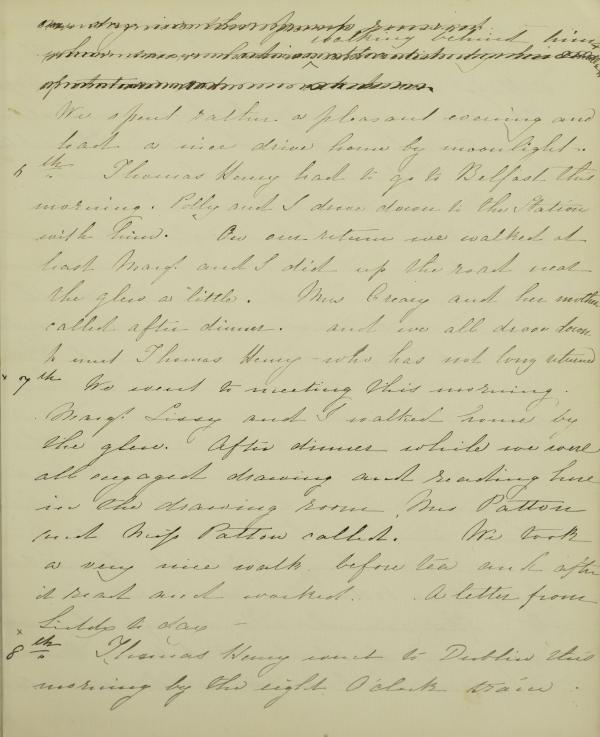 walking behind him
We spent rather a pleasant evening and
had a nice drive home by moonlight.
6th Thomas Henry had to go to Belfast this
morning. Polly and I drove down to the Station
with him. On our return we walked at
least Margt. and I did up the road near
the glen a little. Mrs Creary and her mother
called after dinner. and we all drove down
to meet Thomas Henry - who has not long returned
x 7th We went to meeting this morning.
Margt. Lissy and I walked home by
the glen. After dinner while we were
all engaged drawing and reading here
in the drawing room Mrs Patton
and Miss Patton called. We took
a very nice walk before tea and after
it read and worked. A letter from
to day -
x 8th Thomas Henry went to Dublin this
morning by the eight O'clock train.